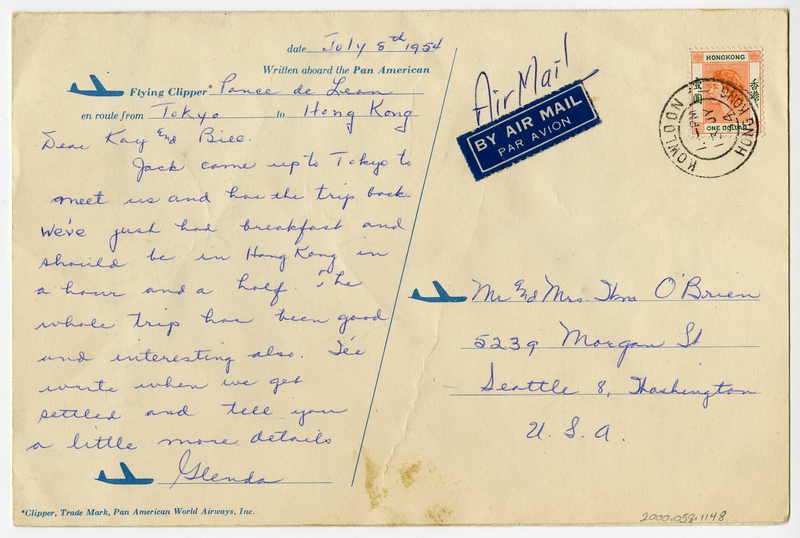 date July 8th 1954
Written aboard the Pan American
Flying Clipper* Ponce de Leon
en route from Tokyo to Hong Kong
Dear Kay And Bill.
Jack came up to Tokyo to
meet us and has the trip back.
We've just had breakfast and
should be in Hong Kong in
a hour and a half. The
whole trip has been good
and interesting also. I'll
write when we get
settled and tell you
a little more details
Glenda
*Clipper, Trade Mark, Pan American World Airways, Inc.
Air Mail
BY AIR MAIL
PAR AVION
HONGKONG
壹圓
香港
ONE DOLLAR
KOWLOON
HONG KONG
Mr And Mrs. Wm O'Brien
5239 Morgan St
Seattle 8, Washington
U. S. A.
2000.058.1148